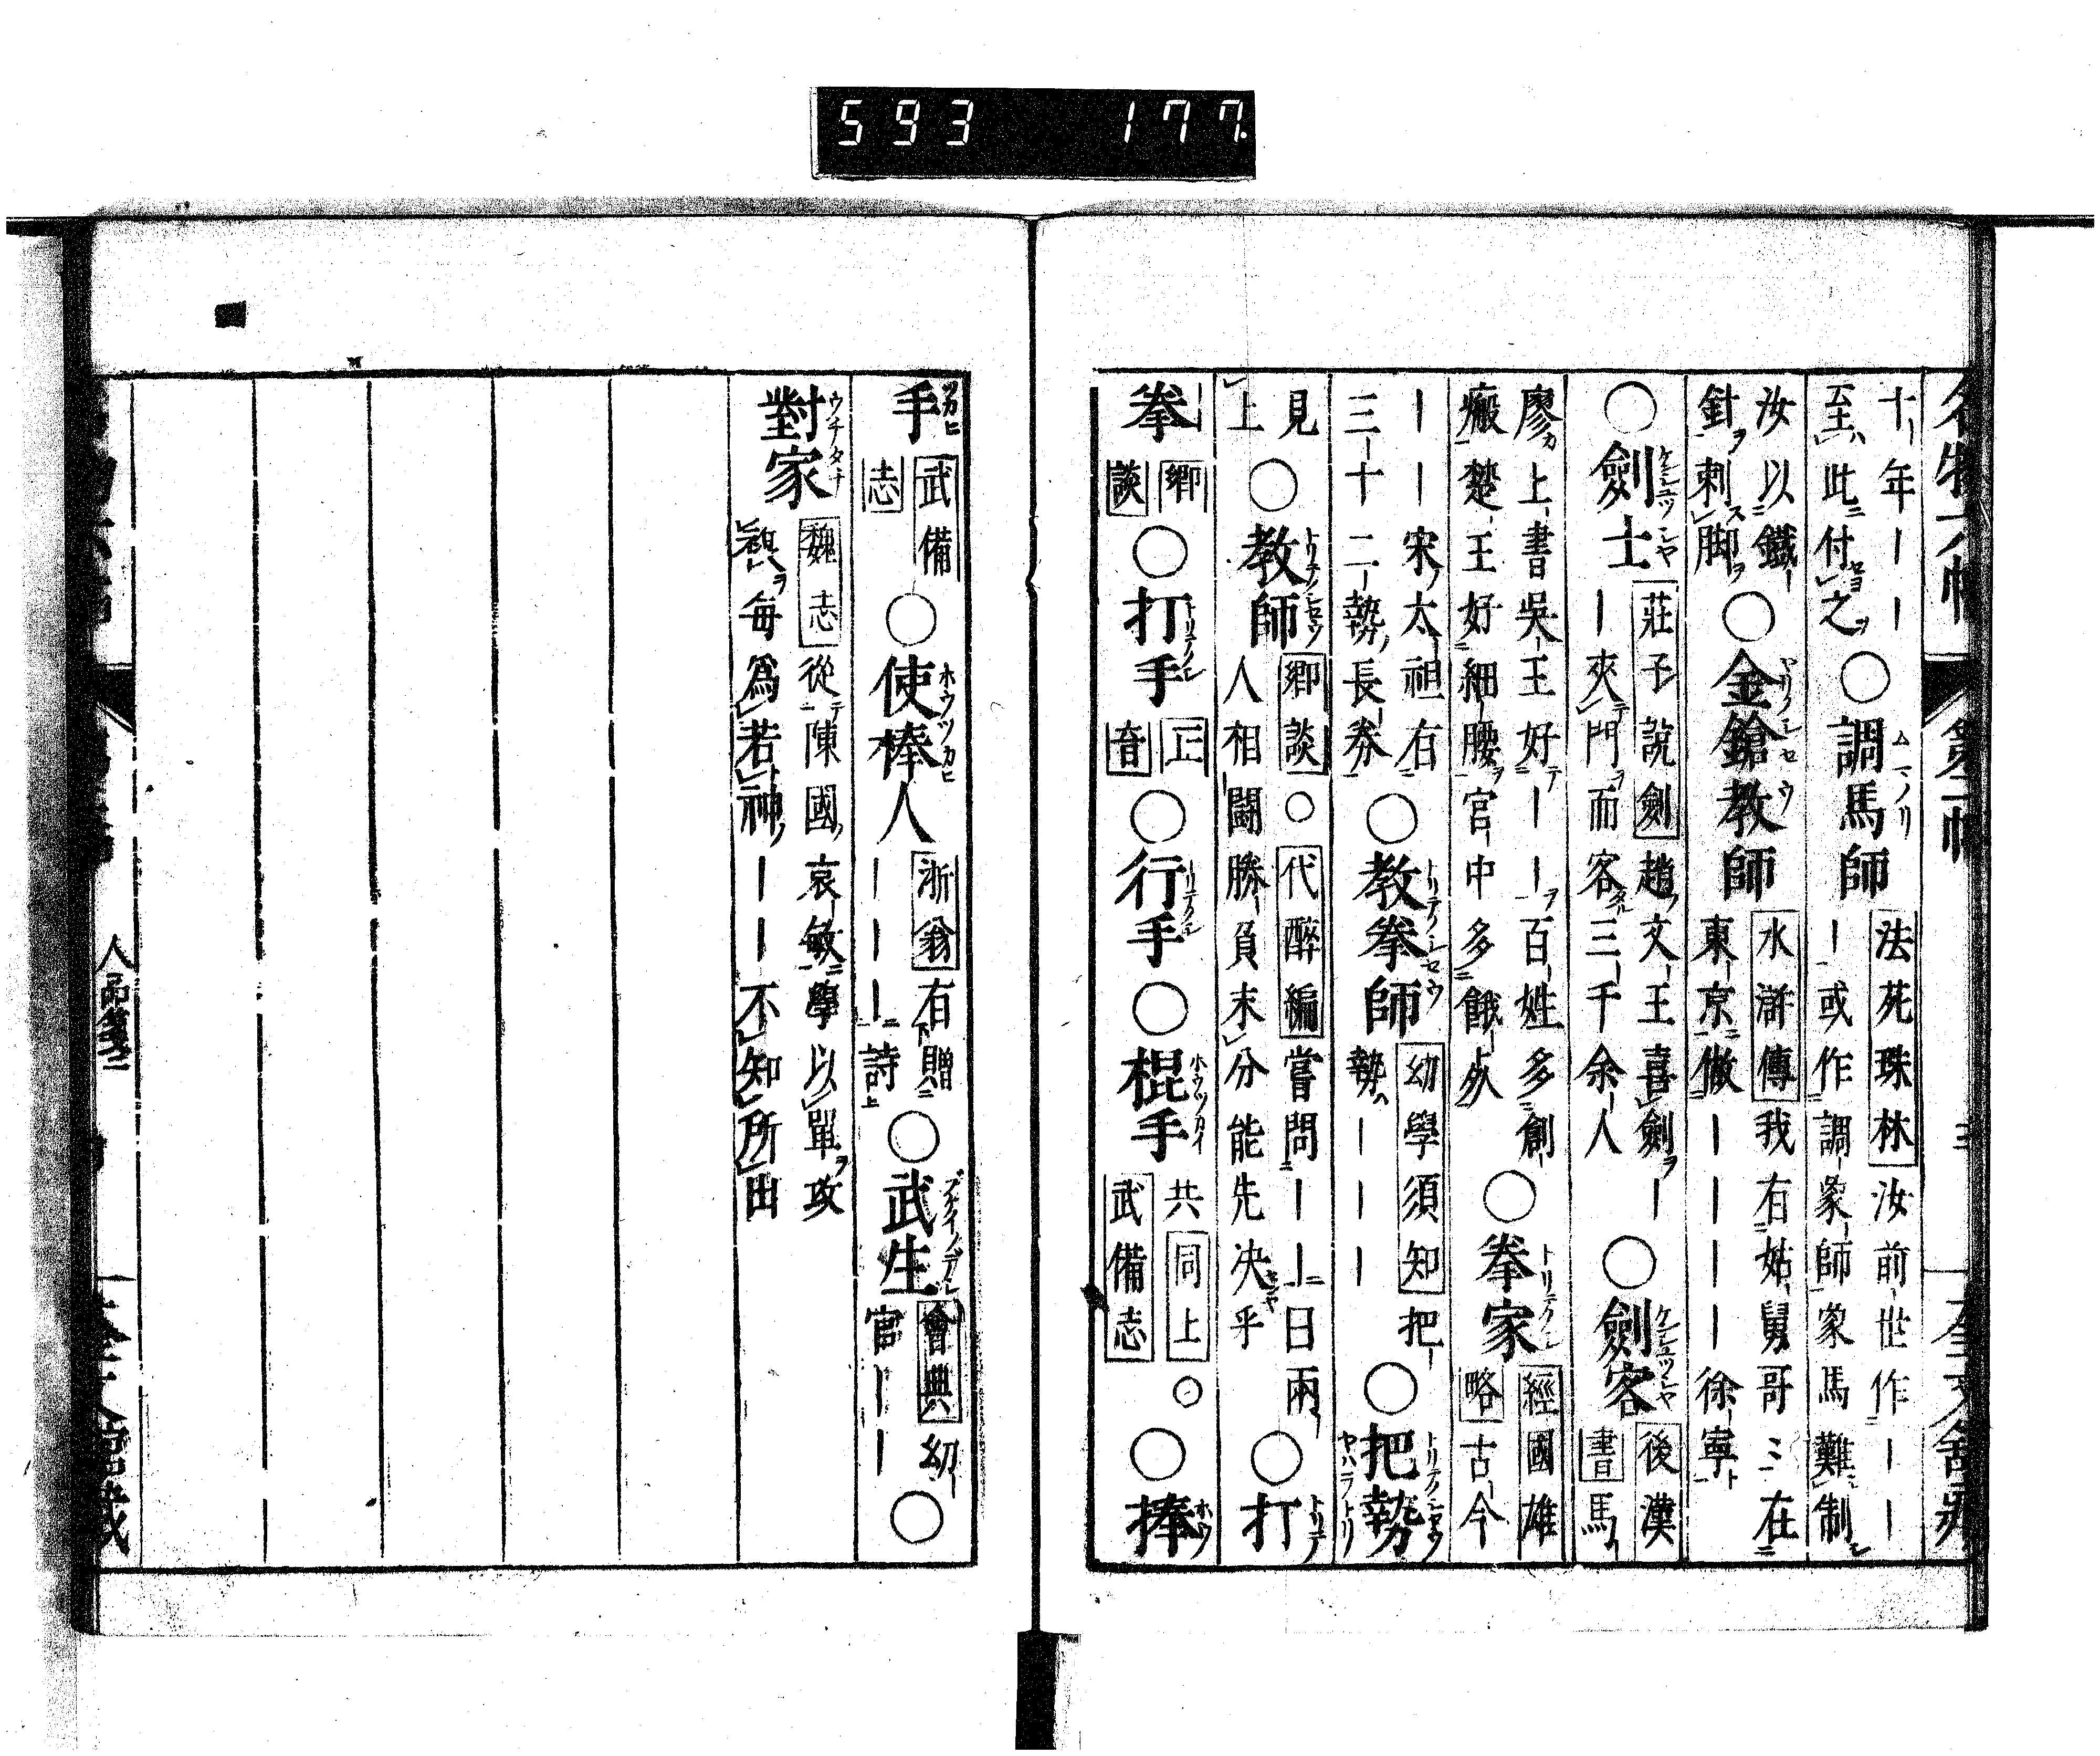 593 177
十年｜｜
至此付之
○調馬師
法苑珠林 汝前世作｜｜
｜或作調象師象馬難制
汝以鐵
針刺脚
○金鎗教師
水滸傳 我有姑舅哥ミ在
東京徼｜｜｜｜徐寧
○劍士
莊子說劍 趙文王喜劍｜
｜夾門而客三千余人
○劍客
後漢書 馬
廖上書吳王好｜｜百姓多創
瘢楚王好細腰官中多餓
○拳家
經國雄略 古今
｜｜宋太祖有
三十二勢長拳
○教拳師
幼學須知 把
勢｜｜｜
○把勢
見
上
○教師
鄉談○代醉編 嘗問｜｜曰兩
人相鬪勝負未分能先決乎
○打
拳
鄉談
○打手
正音
○行手○棍手
共同上○
武備志
○捧
手
武備志
○使棒人
浙翁 有贈
｜｜｜詩
○武生
會典 幼
官｜｜
○
對家
魏志 從陳國袁敏學以單攻
複每為若神｜｜不知所出
人品箋二